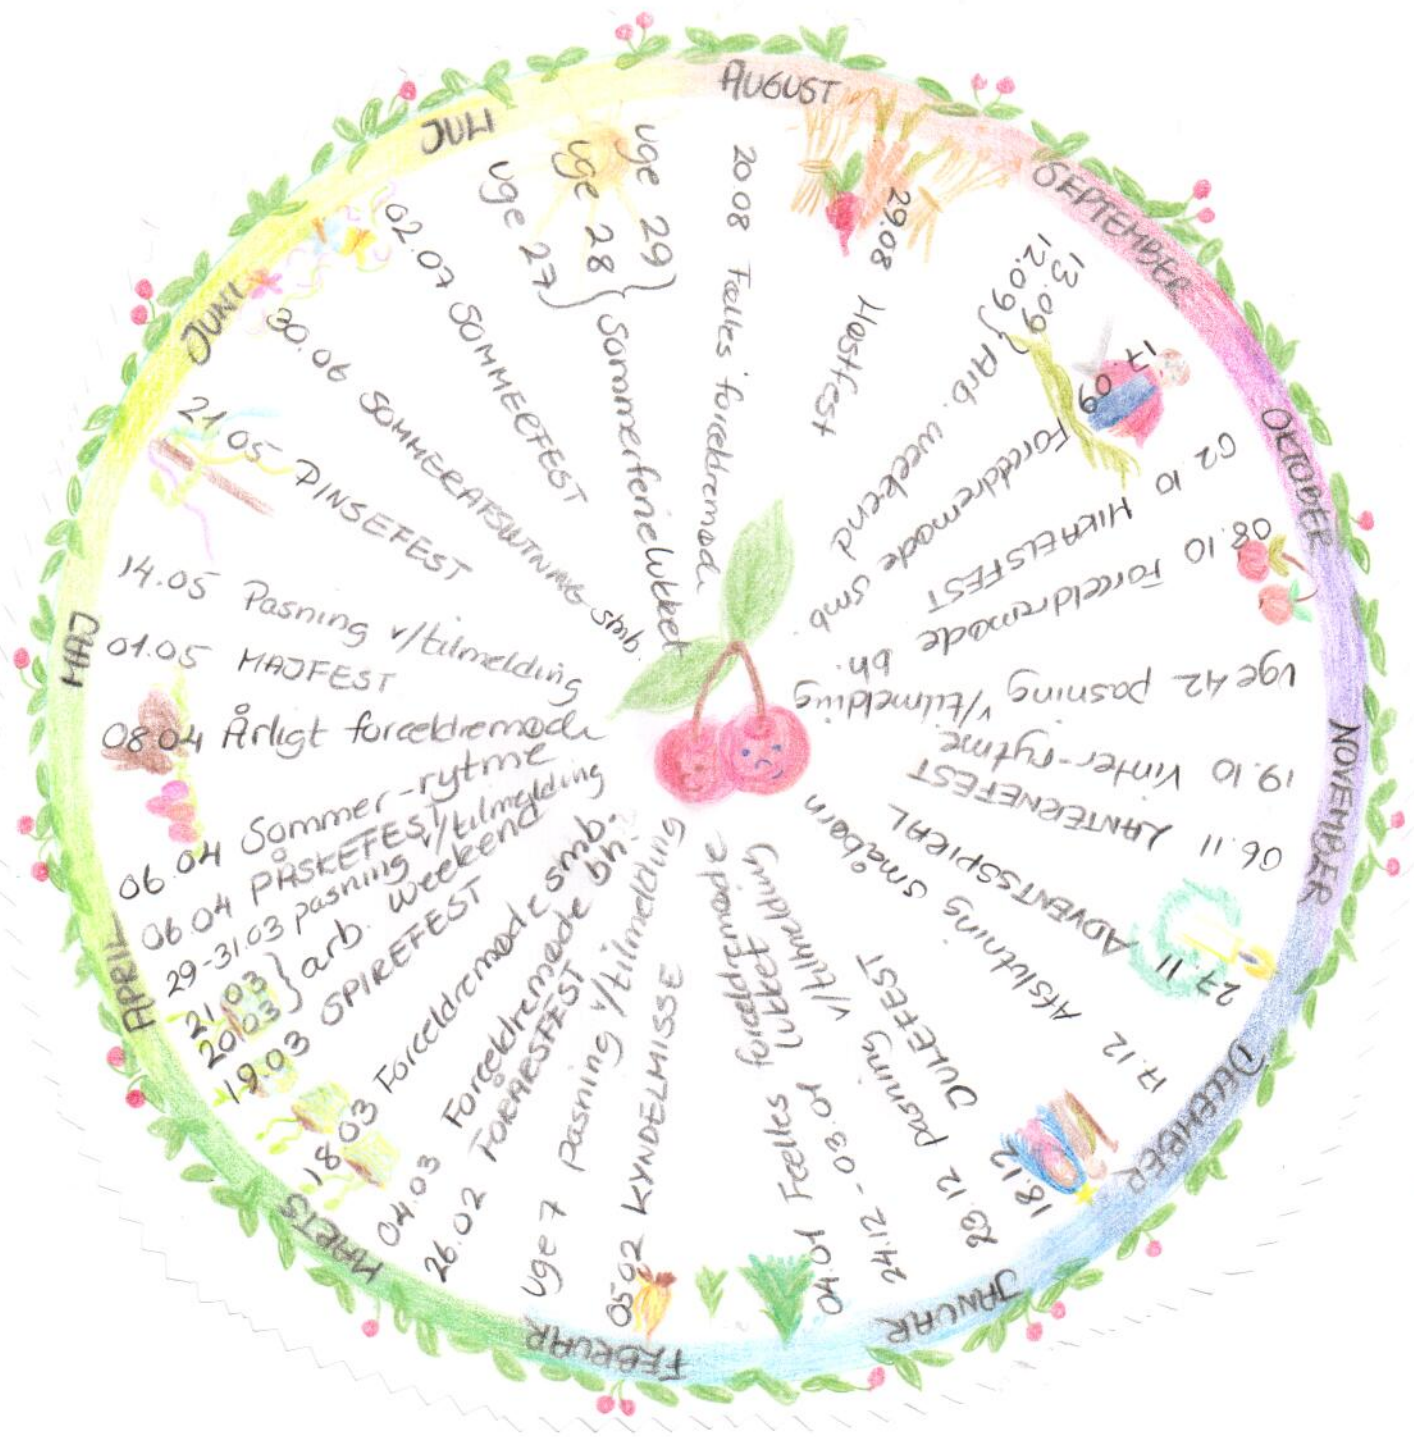 AUGUST
20.08 Fælles forældremøde
29.08 Høstfest
SEPTEMBER
12.09
13.09 } Arb. weekend
17.09 Forældremøde smb.
OKTOBER
02.10 MIKAELSFEST
08.10 Forældremøde bh.
uge 42 pasning v/tilmelding
19.10 Vinter-rytme
NOVEMBER
06.11 LANTERNEFEST
27.11 ADVENTSSPIRAL
DECEMBER
17.12 Afslutning småbørn
18.12 JULEFEST
23.12 pasning v/tilmelding
24.12 - 03.01 lukket
JANUAR
04.01 Fælles forældremøde
FEBRUAR
05.02 KYNDELMISSE
uge 7 pasning v/tilmelding
26.02 FORÅRSFEST
MARTS
04.03 Forældremøde bh.
18.03 Forældremøde smb.
19.03 SPIREFEST
20.03
21.03 } arb. weekend
29-31.03 pasning v/tilmelding
APRIL
06.04 PÅSKEFEST
06.04 Sommer-rytme
08.04 Årligt forældremøde
MAJ
01.05 MAJFEST
14.05 Pasning v/tilmelding
21.05 PINSEFEST
JUNI
30.06 SOMMERAFSLUTNING smb.
02.07 SOMMERFEST
JULI
uge 27
uge 28
uge 29 } Sommerferielukket